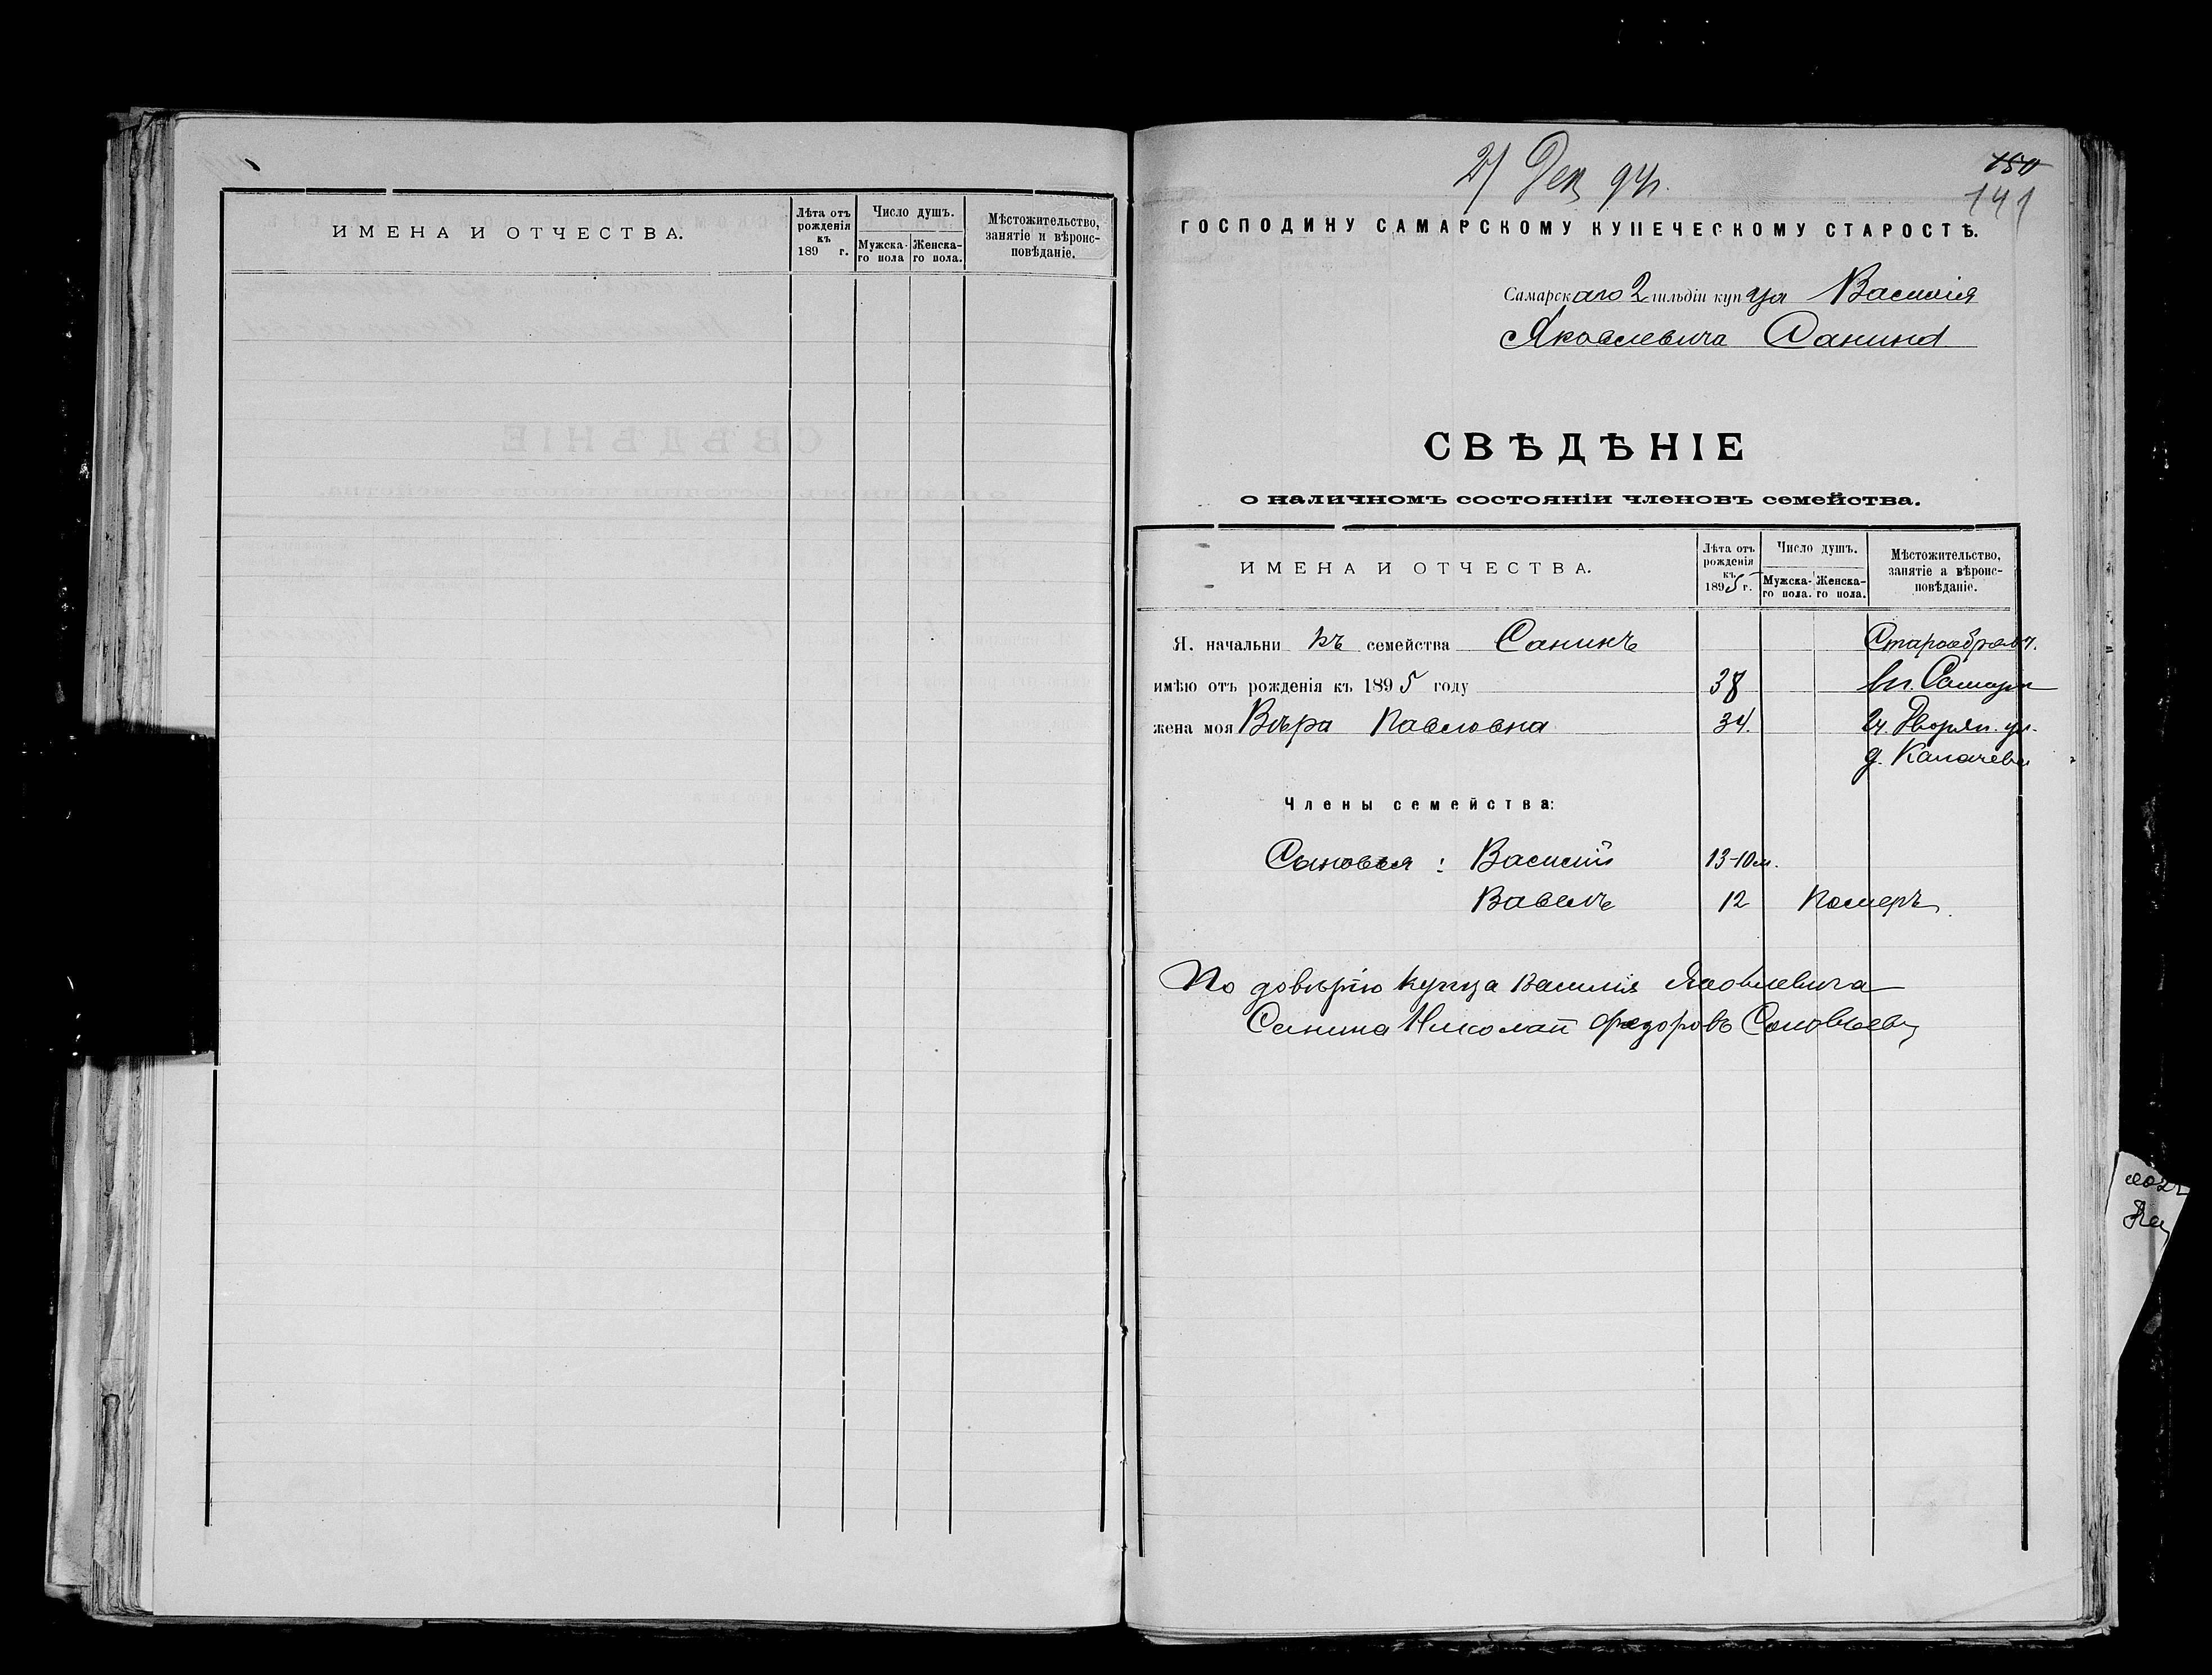 ИМЕНА И ОТЧЕСТВА.
Лѣта отъ рожденія къ 189 г.
Число душъ.
Мужска-го пола
Женска-го пола.
Мѣстожительство, занятіе и вѣроис-повѣданіе.
21 Дек 94 г.
150
141
ГОСПОДИНУ САМАРСКОМУ КУПЕЧЕСКОМУ СТАРОСТѢ.
Самарскаго 2 гильдіи купца Василія
Яковлевича Санина
СВѢДѢНІЕ
о наличномъ состояніи членовъ семейства.
ИМЕНА И ОТЧЕСТВА.
Лѣта отъ рожденія къ 1895 г.
Число душъ.
Мужска-го пола.
Женска-го пола.
Мѣстожительство, занятіе а вѣроис-повѣданіе.
Я. начальникъ семейства Санинъ Старообрядч.
имѣю отъ рожденія къ 1895 году 38 вг. Самары
жена моя Вѣра Павловна 34. 2ч. Дворян. ул.
д. Калачева
Члены семейства:
Сыновья: Василій 13-10 м.
Павелъ 12 померъ.
По довѣрію купца Василія Яковлевича
Санина Николай Федоровъ Соловьевъ